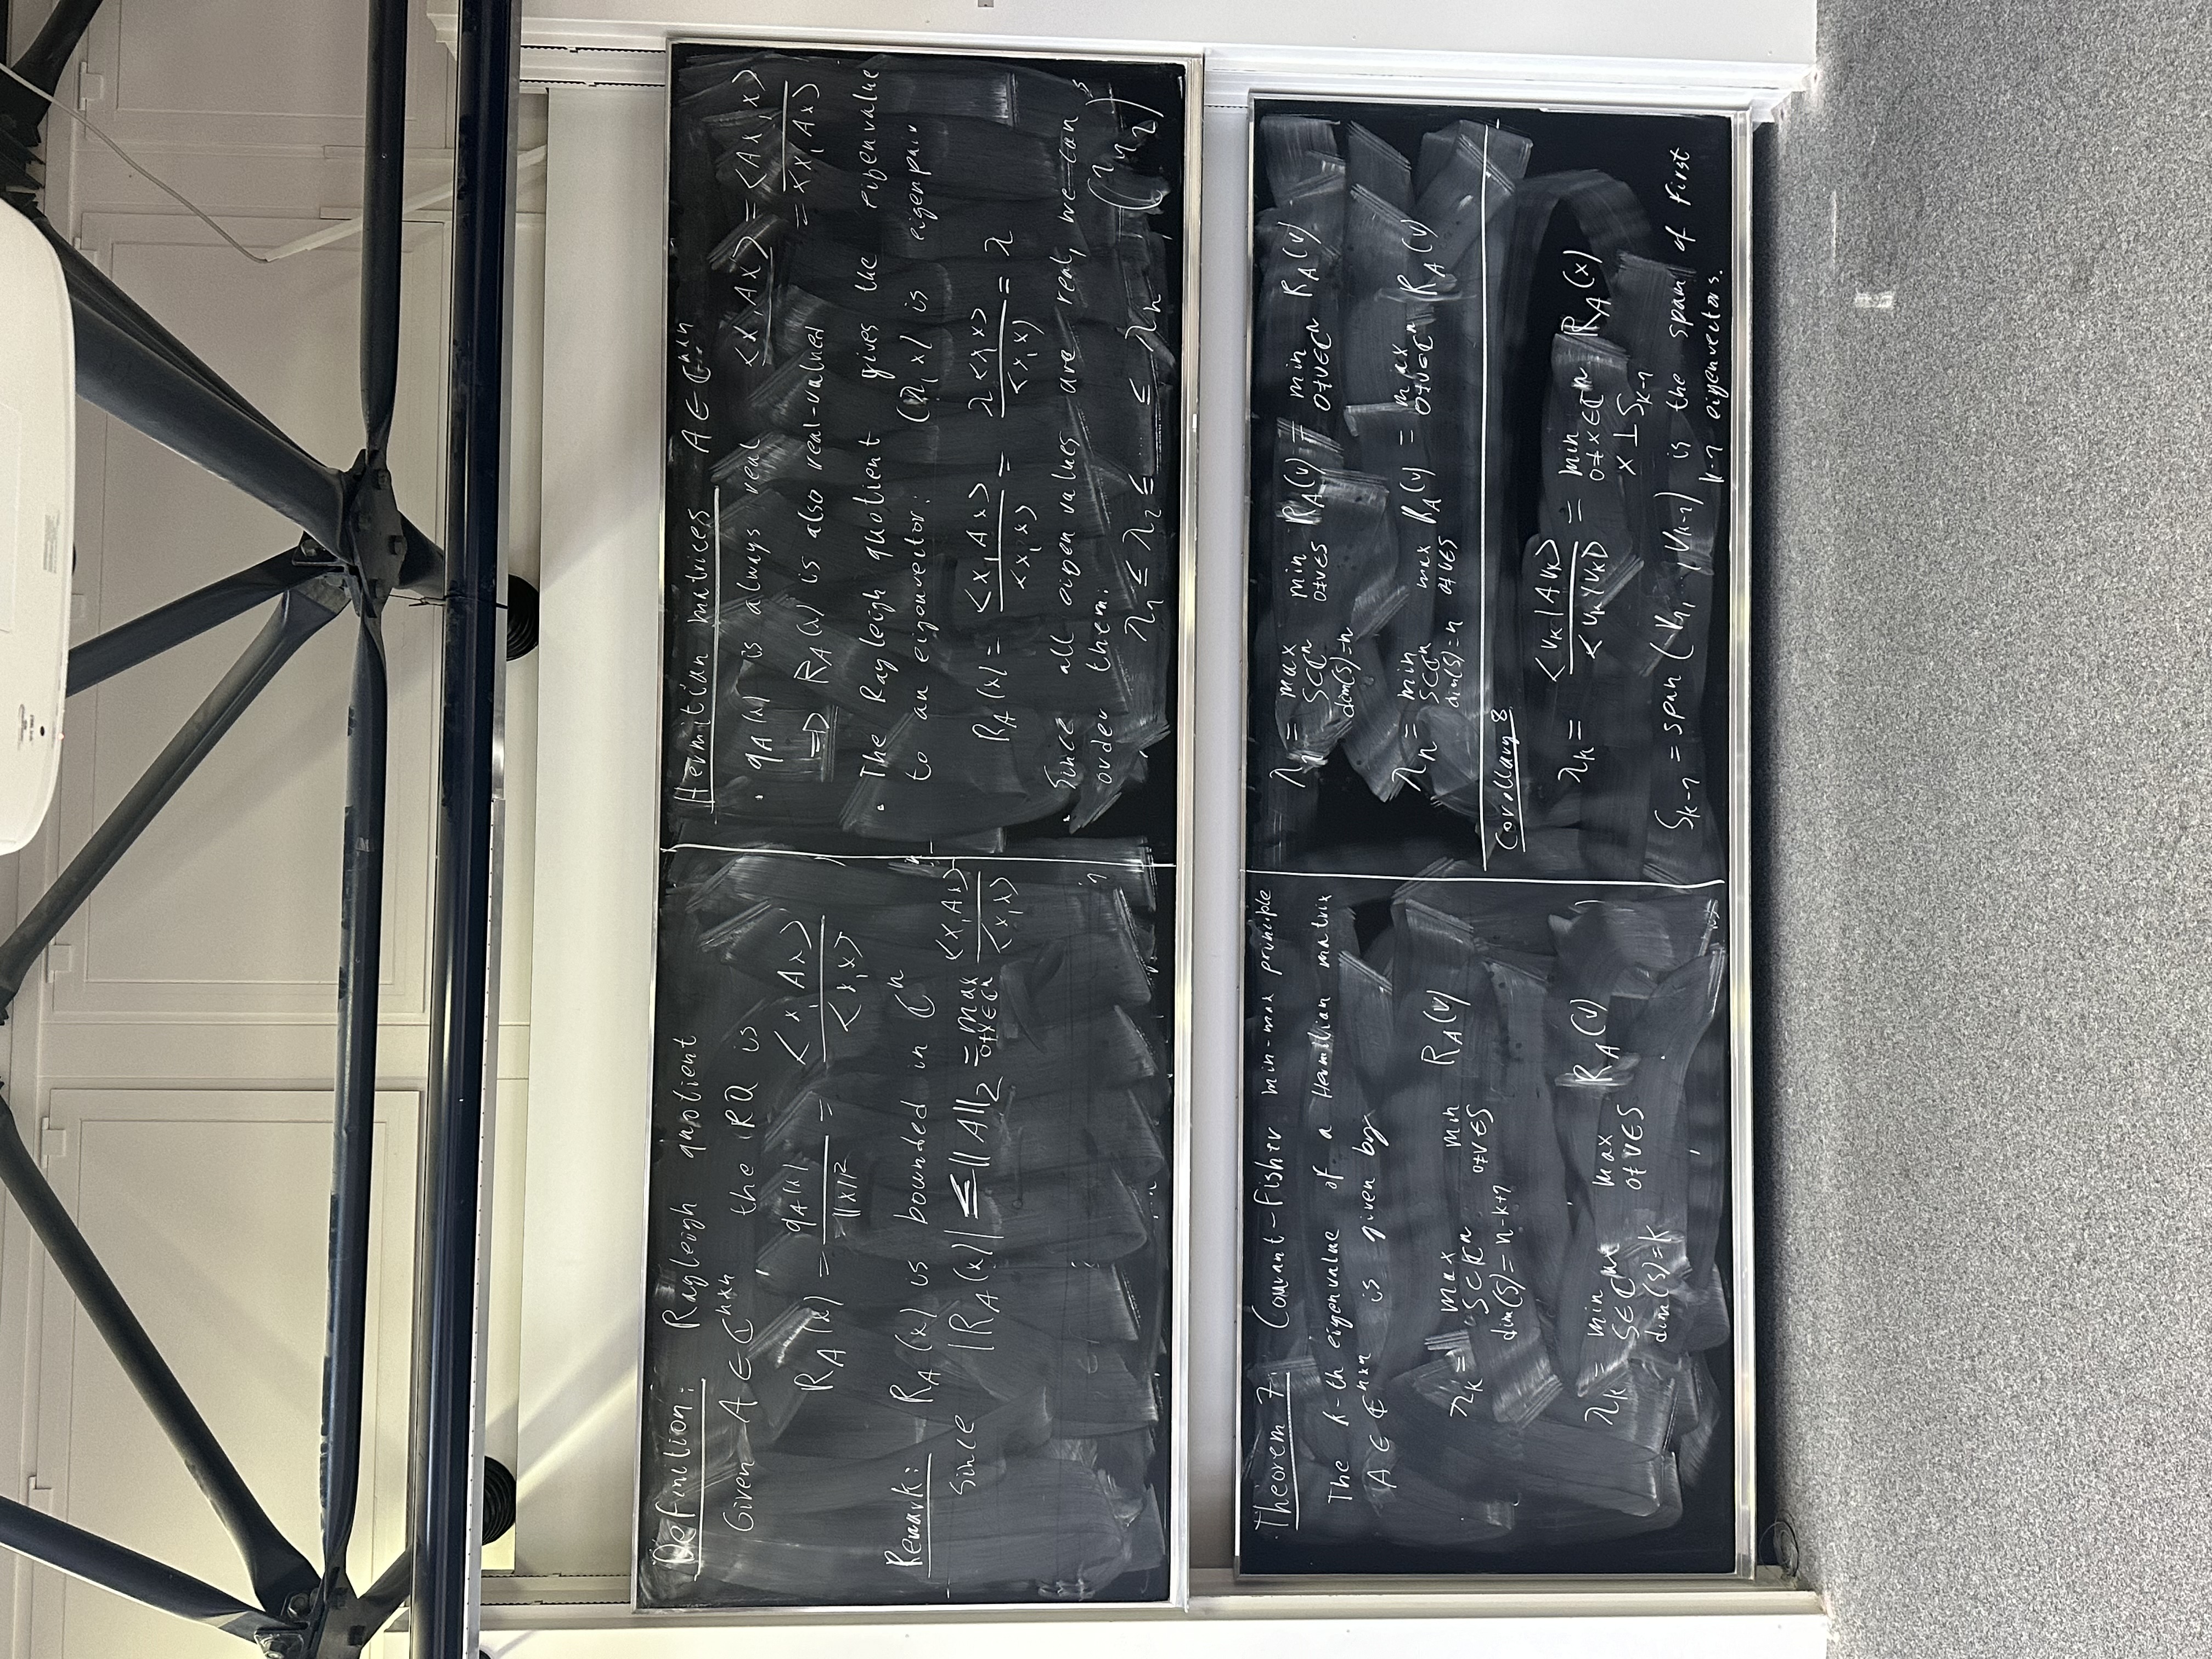 Definition: Rayleigh quotient
Given A ∈ ℂⁿˣⁿ, the RQ is
R_A(x) = q_A(x) / ||x||² = <x, Ax> / <x, x>
Remark: R_A(x) is bounded in ℂⁿ
Since |R_A(x)| ≤ ||A||₂ = max_{0≠x∈ℂⁿ} <x, Ax> / <x, x>
Hermitian matrices A ∈ ℂⁿˣⁿ
· q_A(x) is always real <x, Ax> = <Ax, x>
= <x, Ax>
=> R_A(x) is also real-valued
· The Rayleigh quotient gives the eigenvalue
to an eigenvector: (λ, x) is eigenpair
R_A(x) = <x, Ax> / <x, x> = λ<x, x> / <x, x> = λ
Since all eigenvalues are real, we can
order them:
λ₁ ≤ λ₂ ≤ ≤ λn
Theorem 7 Courant-Fisher min-max principle
The k-th eigenvalue of a Hermitian matrix
A ∈ ℂⁿˣⁿ is given by
λ_k = max_{S⊂ℂⁿ, dim(S)=n-k+1} min_{0≠v∈S} R_A(v)
λ_k = min_{S∈ℂⁿ, dim(S)=k} max_{0≠v∈S} R_A(v)
λ₁ = max_{S⊂ℂⁿ, dim(S)=n} min_{0≠v∈S} R_A(v) = min_{0≠v∈ℂⁿ} R_A(v)
λn = min_{S⊂ℂⁿ, dim(S)=n} max_{0≠v∈S} R_A(v) = max_{0≠v∈ℂⁿ} R_A(v)
Corollary 8
λ_k = <v_k, Av_k> / <v_k, v_k> = min_{0≠x∈ℂⁿ, x⊥S_{k-1}} R_A(x)
S_{k-1} = span(v₁, , v_{k-1}) is the span of first
k-1 eigenvectors.